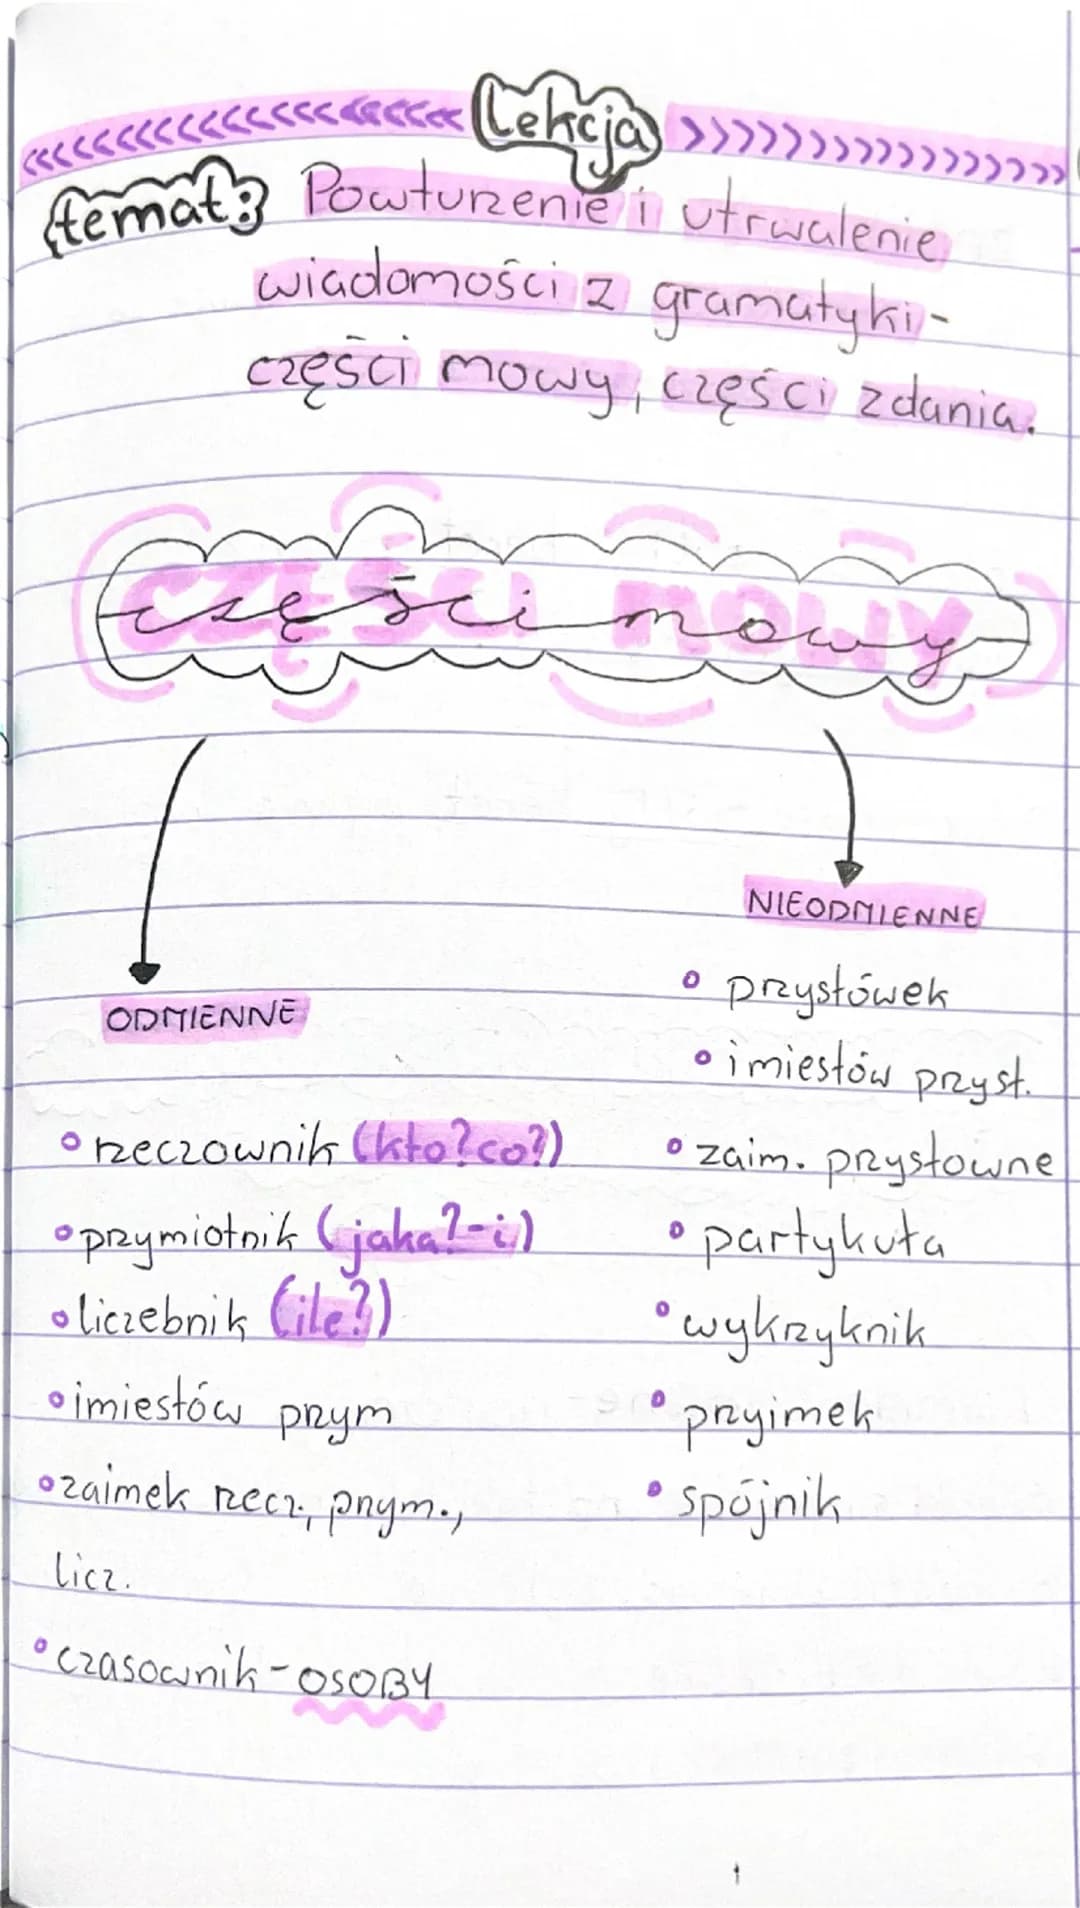 Lekcja
temat: Powturzenie i utrwalenie
wiadomości z gramatyki-
części mowy, części zdania.
CZĘŚCI MOWY
części mowy
ODMIENNE
• rzeczownik (kto?co?)
• przymiotnik (jaka?-i)
• liczebnik (ile?)
• imiesłów przym
• zaimek rzecz, przym.,
licz.
• czasownik-OSOBY
NIEODMIENNE
• przysłówek
• imiesłów przysł.
• zaim. przysłowne
• partykuła
• wykrzyknik
• przyimek
• spójnik